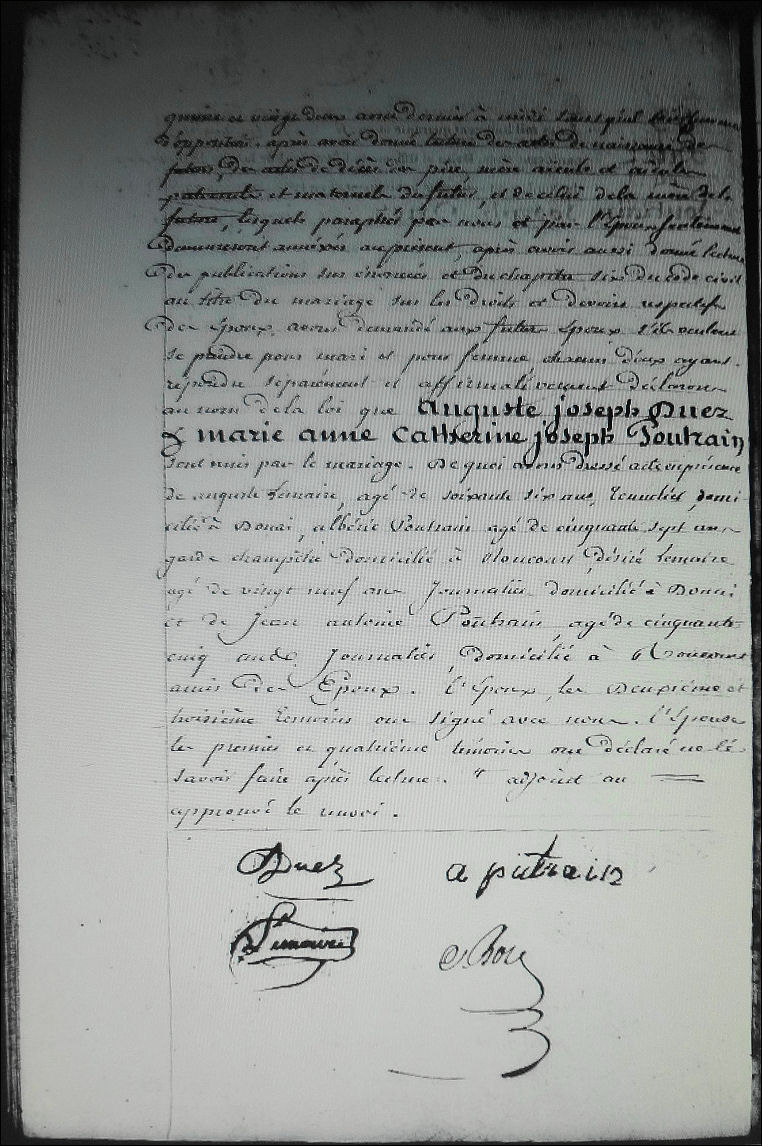 quinze et vingt deux avril dernier à midi
d'opposition. après avoir donné lecture des actes de naissance des
futurs, des actes de décès des père, mère aïeuls et aïeules
paternels et maternels du futur, et de celui de la mère de la
future, lesquels paraphés par nous et par l'époux
demeureront annexés au présent, après avoir aussi donné lecture
des publications sus énoncées et du chapitre six du code civil
au titre du mariage sur les droits et devoirs respectifs
des époux, avons demandé aux futurs époux s'ils veulent
se prendre pour mari et pour femme chacun d'eux ayant
répondu séparément et affirmativement déclarons
au nom de la loi que Auguste joseph Duez
& marie anne Catherine joseph Poutrain
sont unis par le mariage. De quoi avons dressé acte en présence
de auguste Lemaire, agé de soixante six ans, domi-
cilié à Douai, albéric Poutrain agé de cinquante sept ans
garde champêtre domicilié à Roucourt, désiré Lemaire
agé de vingt neuf ans Journalier domicilié à Douai
et de Jean antoine Poutrain agé de cinquante-
cinq ans Journalier, domicilié à Roucourt
amis des Epoux. l'époux, les deuxième et
troisième témoins ont signé avec nous. l'épouse
les premier et quatrième témoins ont déclaré ne le
savoir faire après lecture. adjoint au
approuvé le renvoi.
Duez a putrain
Lemaire